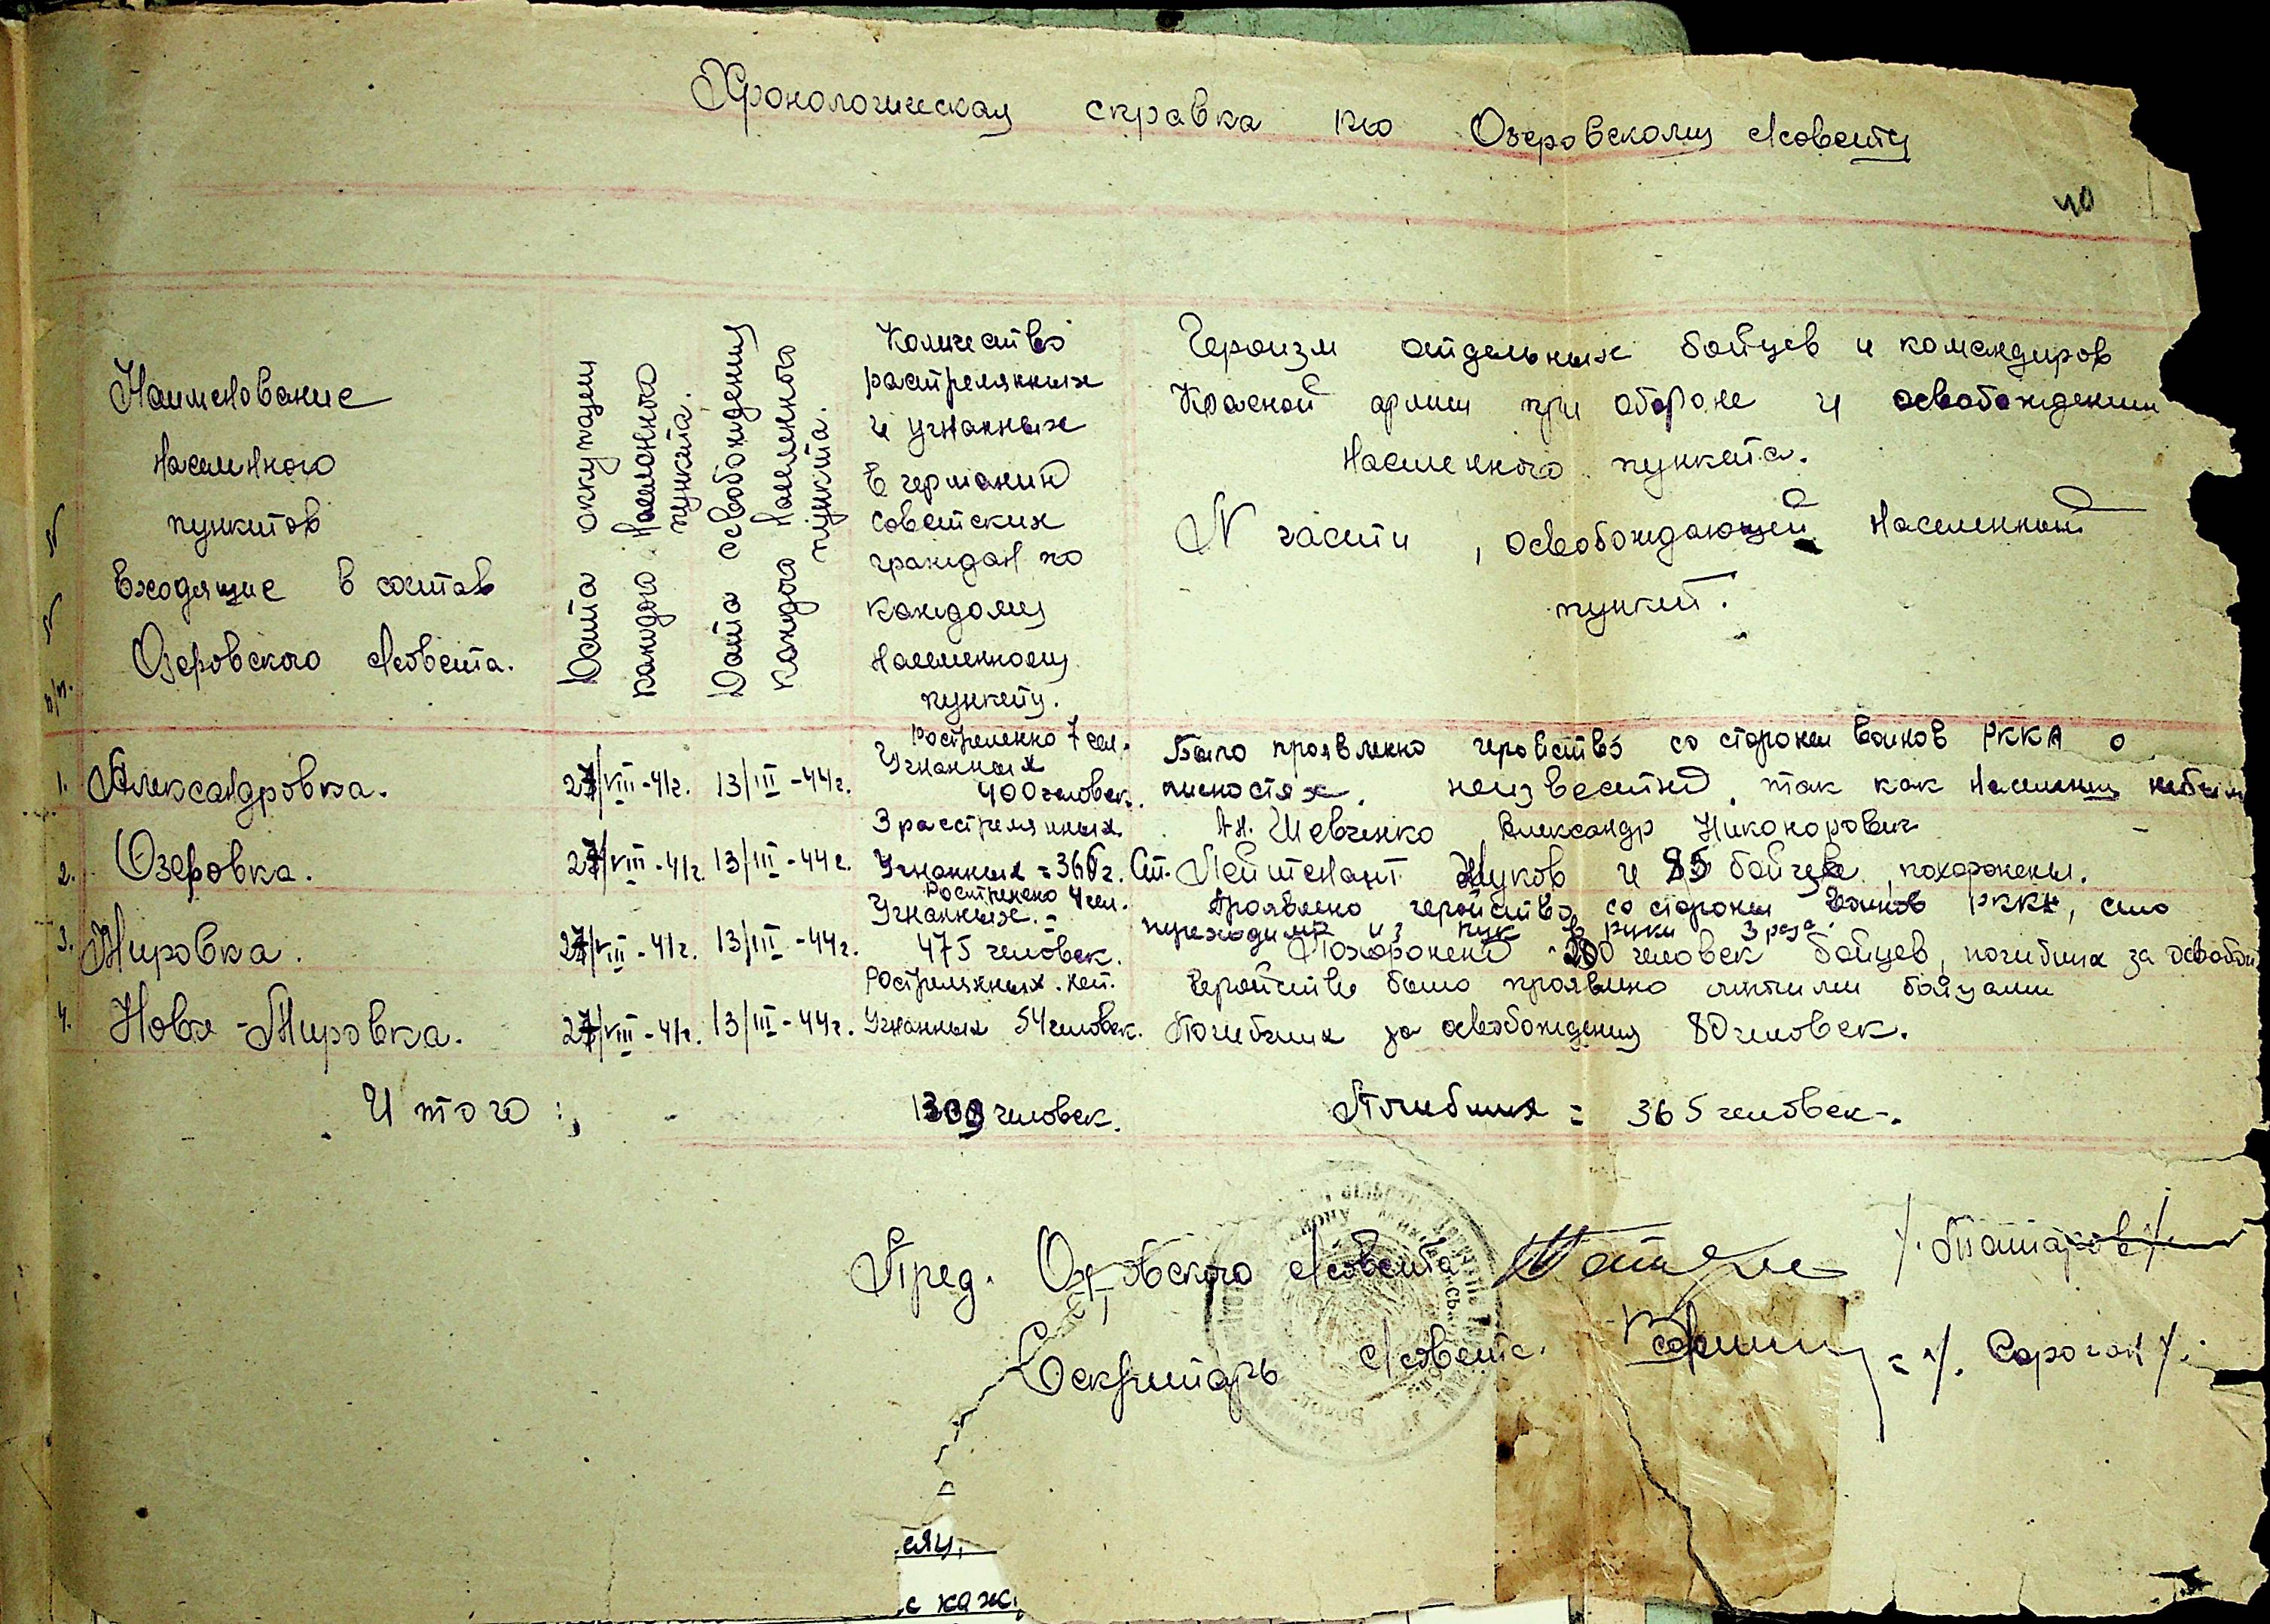 Хронологическая справка по Озеровскому с/совету
40
Наименование
населеного
пунктов
входящие в состав
Озеровского с/совета.
N
N
п/п.
Дата оккупации
каждого населенного
пункта.
Дата освобождения
каждого населенного
пункта.
Количество
растрелянных
и угнанных
в германию
советских
граждан по
каждому
населенному
пункту.
Героизм отдельных бойцев и командиров
Красной армии при обороне и освобождении
населенного пункта.
N части, освобождающей населенный
пункт.
1. Александровка. 27/VIII-41г. 13/III-44г. Растреленно 7 чел. Угнанных 400 человек.
Было проявленно геройство со стороны воинов РККА о
личностях, неизвестно, так как населения небыло
2. Озеровка. 27/VIII-41г. 13/III-44г. 3 расстрелянных Угнанных = 366ч.
Шевченко Александр Никонорович
Ст. Лейтенант Жуков и 85 бойцев, похоронены.
3. Мировка. 27/VIII-41г. 13/III-44г. Растрелено 4 чел. Угнанных. = 475 человек.
Проявлено геройство со стороны воинов РККА, село
переходило из рук в руки 3 раза.
Похоронено 200 человек бойцев, погибших за освобож
4. Ново-Мировка. 27/VIII-41г. 13/III-44г. Растрелянных. нет. Угнанных 54 человек.
Геройство было проявлено бойцами
Погибших за освобождения 80 человек.
Итого: 1309 человек. Погибших = 365 человек.
Пред. Озеровского с/совета /Татарков/
Секретарь с/совета. = /. Сорочан /.
.сяц.
с каж.